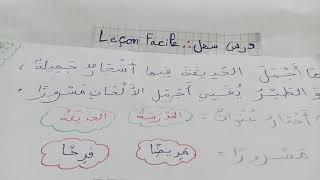 Leçon facile : درس سهل
مَا أَجْمَلَ الحَدِيقَةَ فِيهَا أَشْجَارٌ جَمِيلَةٌ ،
وَ الطَّيْرُ يُغَنِّي أَجْمَلَ الأَلْحَانِ مَسْرُورًا .
أَخْتَارُ عُنْوَانًا : المَدْرَسَةُ الحَدِيقَةُ
مَسْرُورًا = مَرِيضًا فَرِحًا